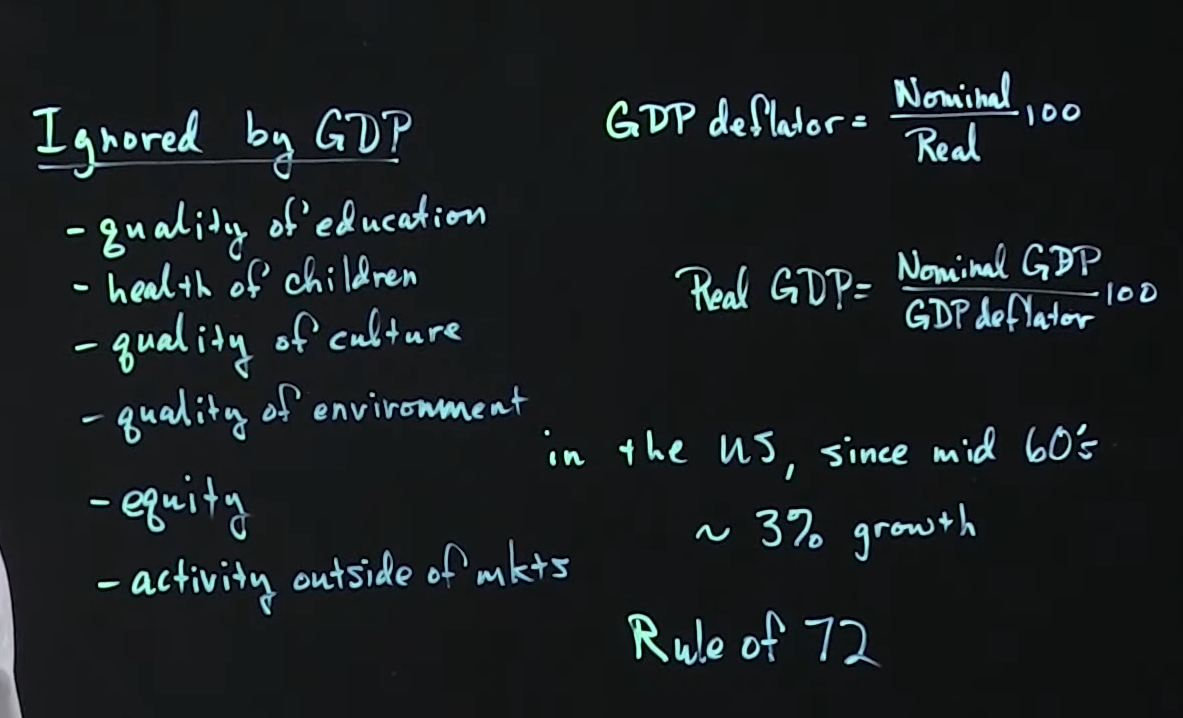 Ignored by GDP
- quality of education
- health of children
- quality of culture
- quality of environment
- equity
- activity outside of mkts
GDP deflator = Nominal / Real 100
Real GDP = Nominal GDP / GDP deflator 100
in the US, since mid 60's
~ 3% growth
Rule of 72